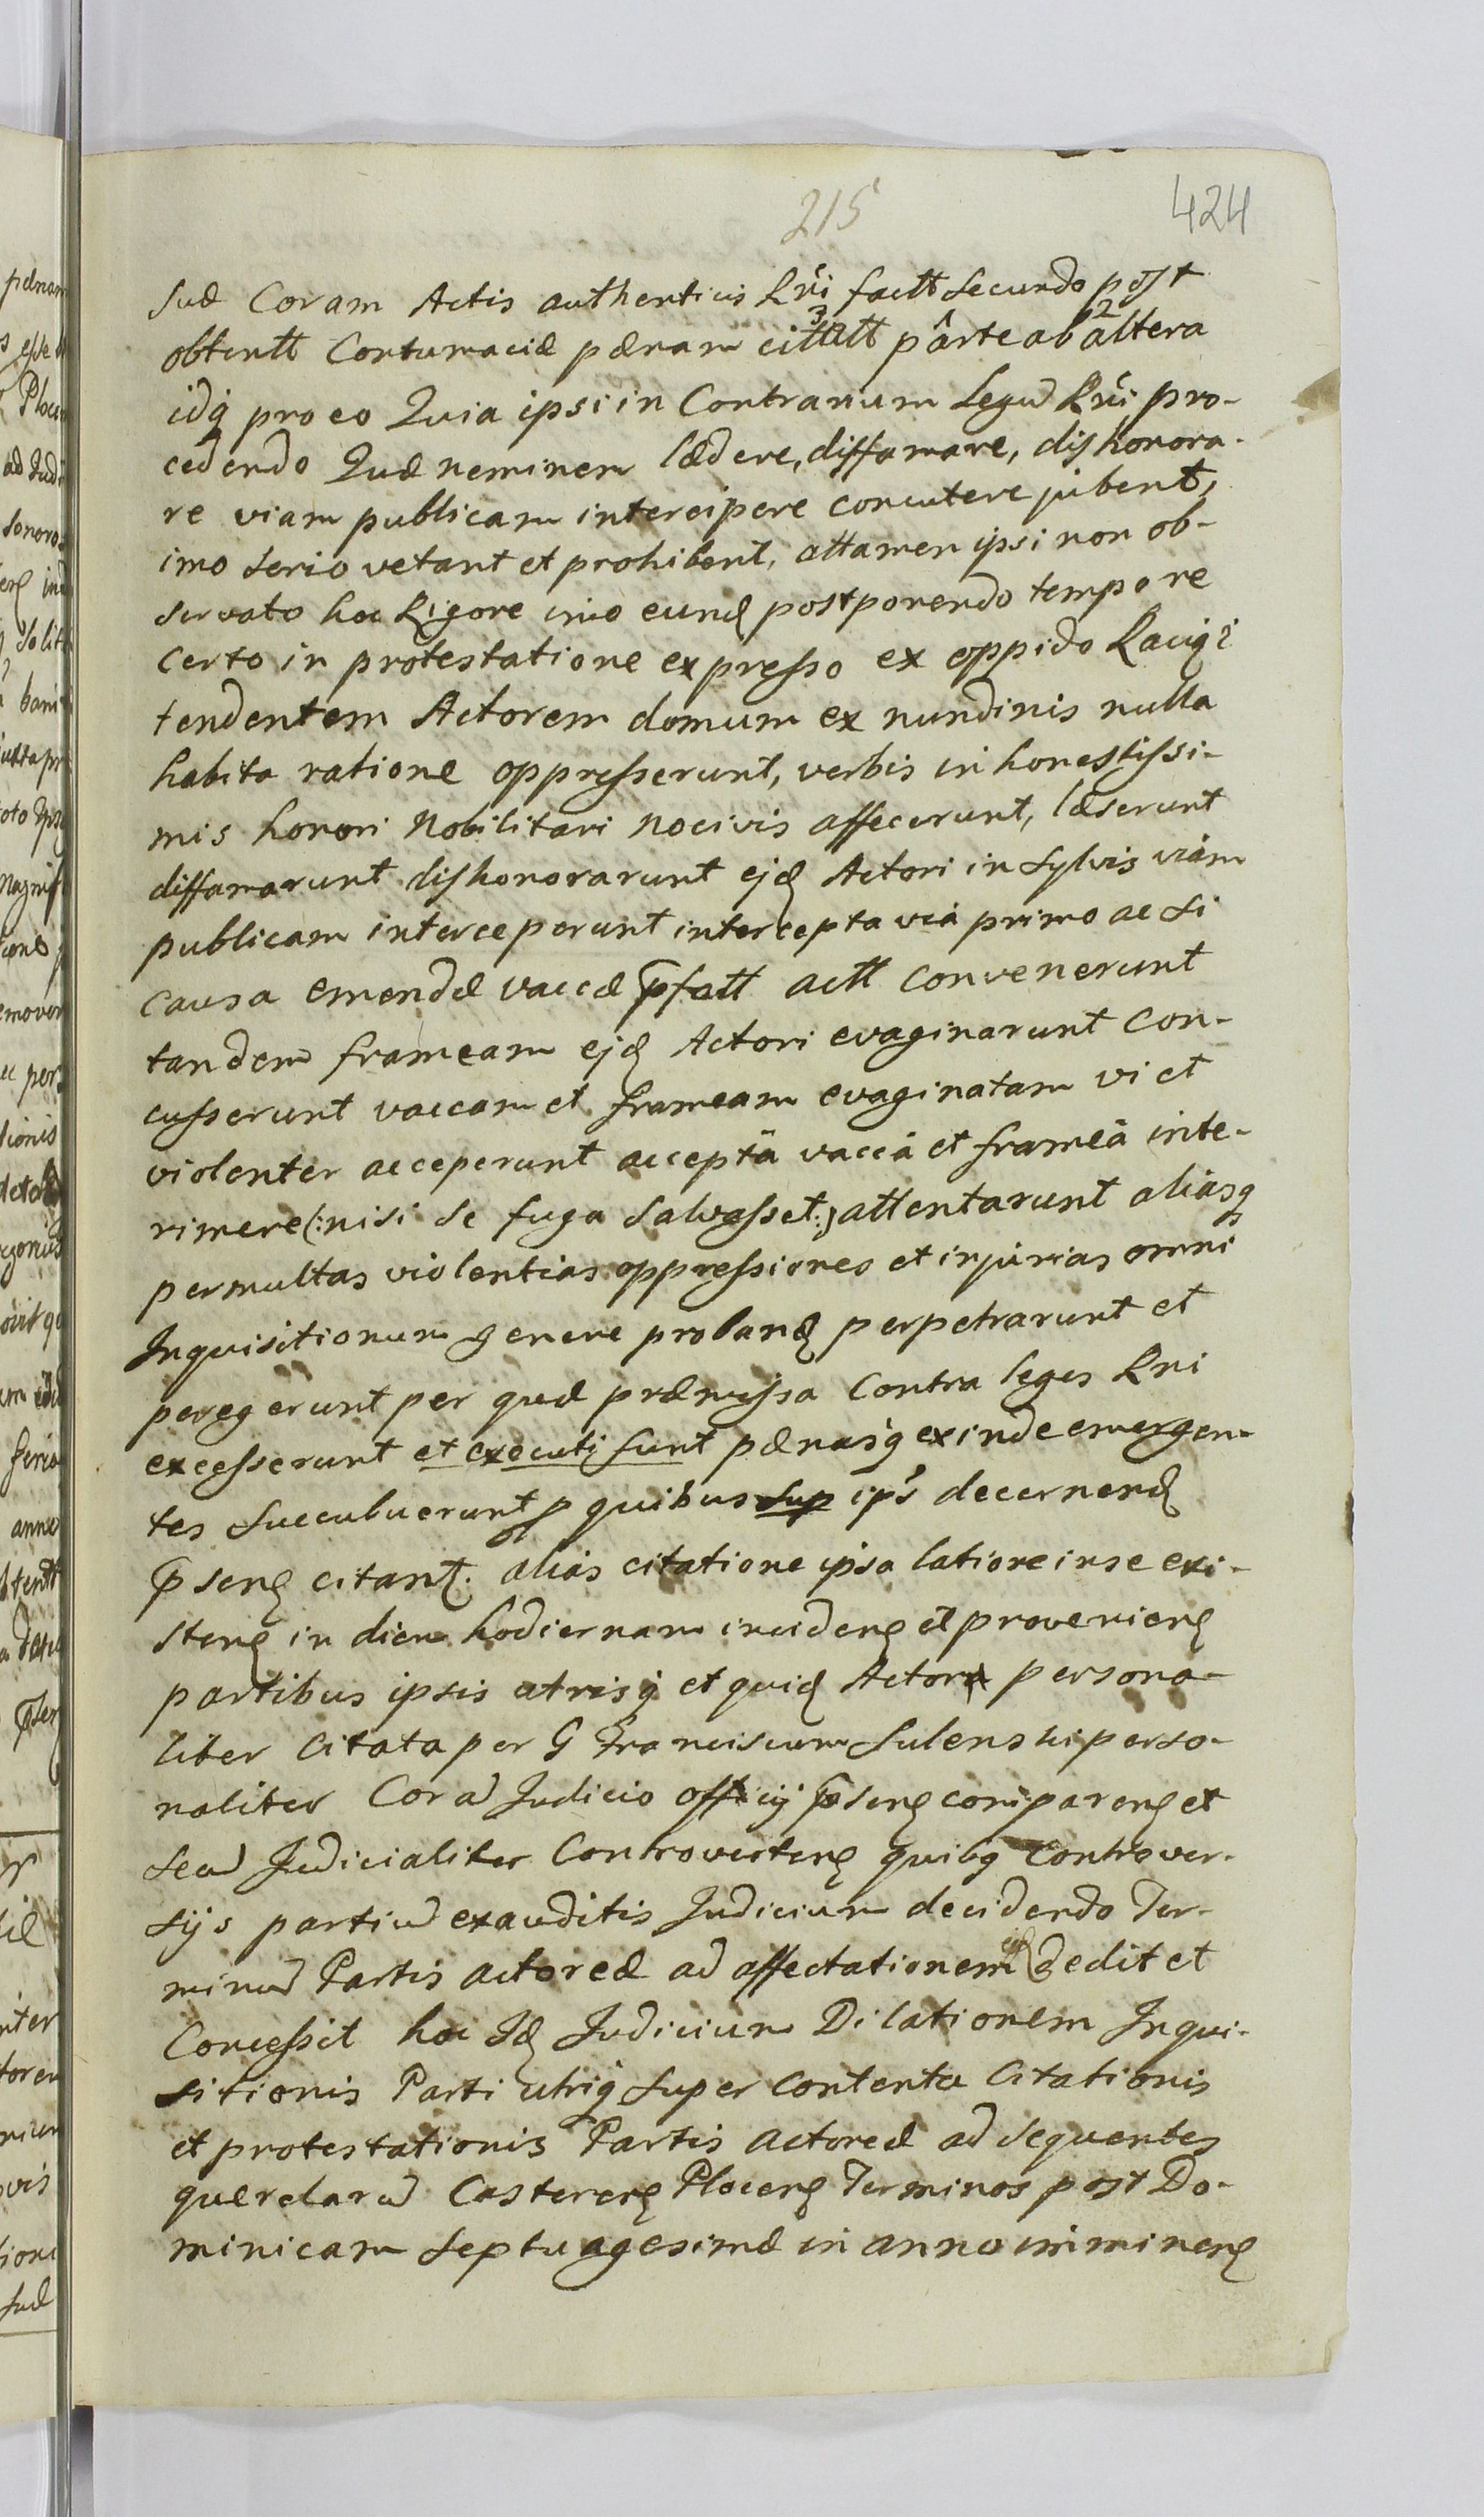 215 424
suæ Coram Actis authenticis Rni factt secundo post
obtentt Contumaciæ pænam cittatt parte ab altera
idq pro eo Quia ipsi in Contrarium Legu Rni pro-
cedendo Quæ neminem lædere, diffamare, dishonora-
re viam publicam intercipere concutere jubent,
imo serio vetant et prohibent, attamen ipsi non ob-
servato hoc Rigore imo eund postponendo tempore
certo in protestatione expresso ex oppido Raciąż
tendentem Actorem domum ex nundinis nulla
habita ratione oppresserunt, verbis inhonestissi-
mis honori Nobilitari nocivis affecerunt, læserunt
diffamarunt dishonorarunt ejd Actori in Sylvis viam
publicam interceperunt intercepta via primo ac si
causa emendæ vaccæ pfatt actt convenerunt
tandem frameam ejd Actori evaginarunt con-
cusserunt vaccam et frameam evaginatam vi et
violenter acceperunt acceptâ vaccâ et frameâ inte-
rimere (: nisi se fuga salvasset :) attentarunt aliasq
permultas violentias oppressiones et injurias omni
Inquisitionum genere proband perpetrarunt et
peregerunt per quæ præmissa Contra leges Rni
excesserunt et executi sunt pænasq exinde emergen-
tes succubuerunt p quibus sup ips decernend
psens citant. alias citatione ipsa latiore in se exi-
stens in diem hodiernam incidens et proveniens
partibus ipsis utrisq et quid Actorea persona-
liter citata per G Franciscum Sulenski perso-
naliter Corã Judicio officij psens comparens et
seu Judicialiter Controvertens quibq Controver-
sijs partiu exauditis Judicium decidendo Ter-
minu Partis actoreæ ad affectationem ejd dedit et
Concessit hoc Id Judicium Dilationem Inqui-
sitionis Parti utriq super contenta Citationis
et protestationis Partis actoreæ ad sequentes
querelaru Castrens Plocens Terminos post Do-
minicam Septuagesimæ in anno imminens